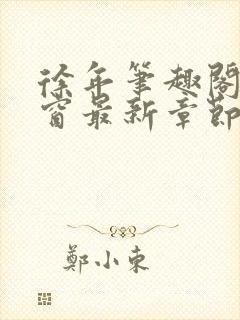 徐年筆趣閣
窗最新章節
鄭小東